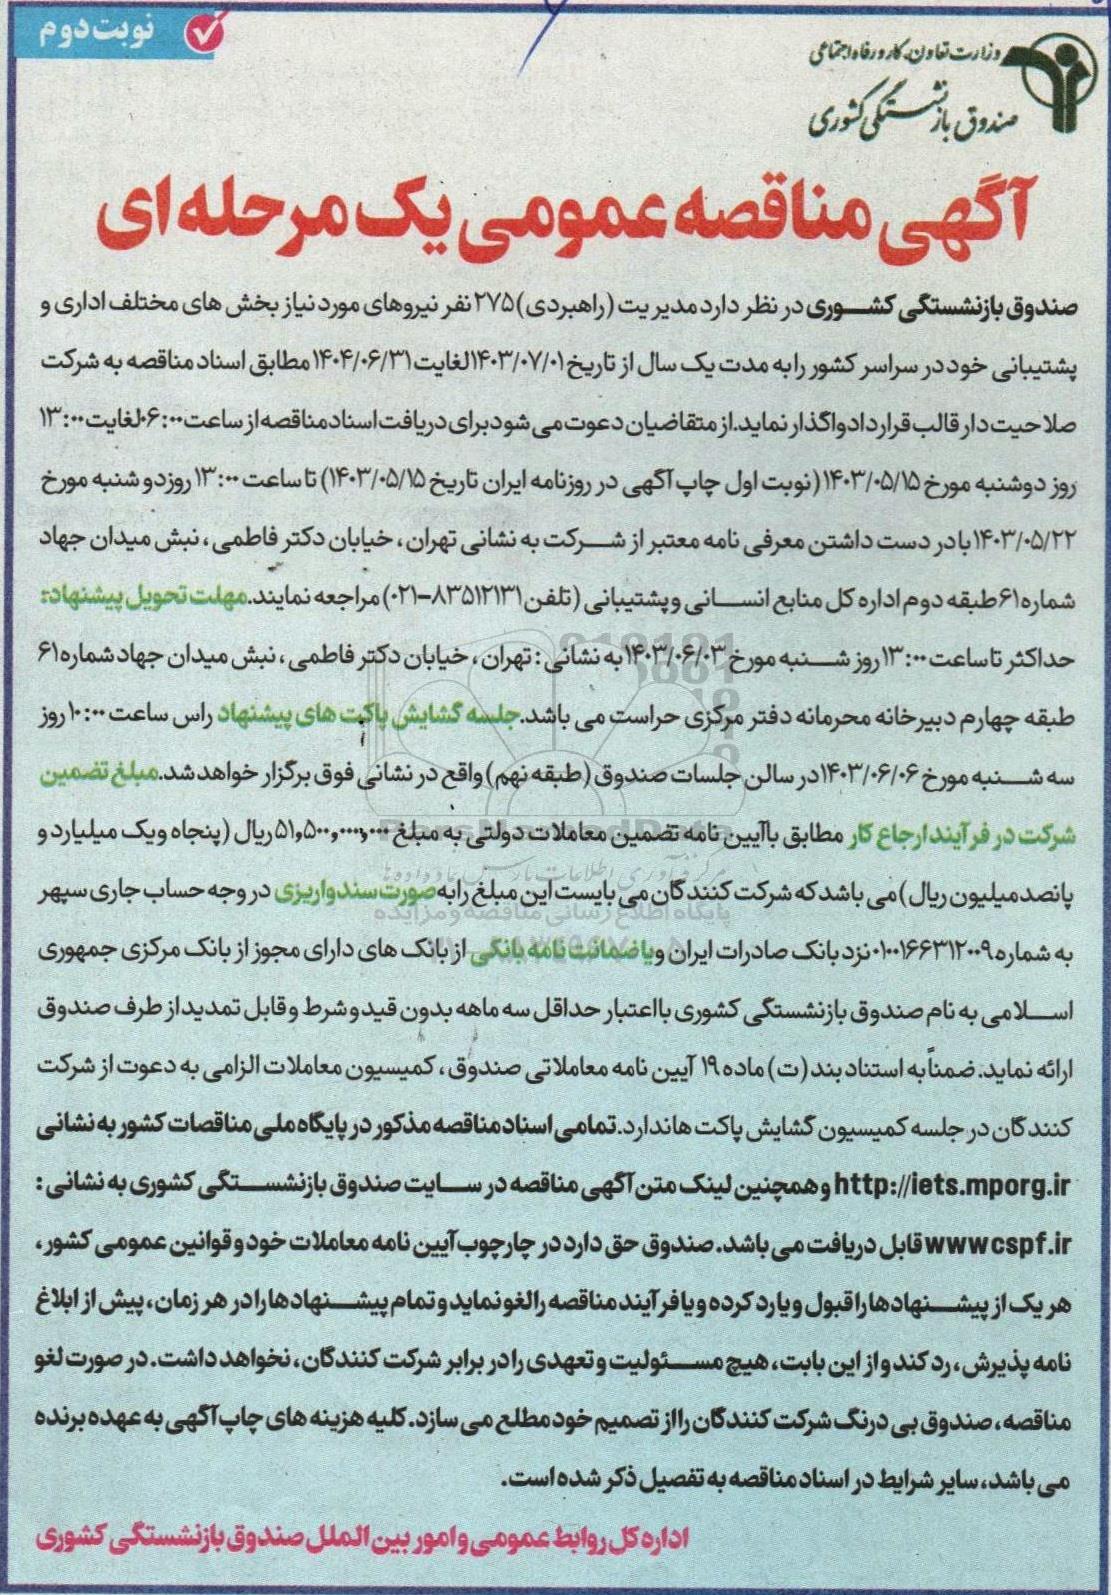 نوبت دوم
وزارت تعاون، کار و رفاه اجتماعی
صندوق بازنشستگی کشوری
آگهی مناقصه عمومی یک مرحله ای
صندوق بازنشستگی کشوری در نظر دارد مدیریت (راهبردی) ۲۷۵ نفر نیروهای مورد نیاز بخش های مختلف اداری و
پشتیبانی خود در سراسر کشور را به مدت یک سال از تاریخ ۱۴۰۳/۰۷/۰۱ لغایت ۱۴۰۴/۰۶/۳۱ مطابق اسناد مناقصه به شرکت
صلاحیت دار قالب قرارداد واگذار نماید. از متقاضیان دعوت می شود برای دریافت اسناد مناقصه از ساعت ۰۶:۰۰ لغایت ۱۳:۰۰
روز دوشنبه مورخ ۱۴۰۳/۰۵/۱۵ (نوبت اول چاپ آگهی در روزنامه ایران تاریخ ۱۴۰۳/۰۵/۱۵) تا ساعت ۱۳:۰۰ روز دو شنبه مورخ
۱۴۰۳/۰۵/۲۲ با در دست داشتن معرفی نامه معتبر از شرکت به نشانی تهران، خیابان دکتر فاطمی، نبش میدان جهاد
شماره ۶۱ طبقه دوم اداره کل منابع انسانی و پشتیبانی (تلفن ۸۳۵۱۲۱۳۱-۰۲۱) مراجعه نمایند. مهلت تحویل پیشنهاد:
حداکثر تا ساعت ۱۳:۰۰ روز شنبه مورخ ۱۴۰۳/۰۶/۰۳ به نشانی: تهران، خیابان دکتر فاطمی، نبش میدان جهاد شماره ۶۱
طبقه چهارم دبیرخانه محرمانه دفتر مرکزی حراست می باشد. جلسه گشایش پاکت های پیشنهاد راس ساعت ۱۰:۰۰ روز
سه شنبه مورخ ۱۴۰۳/۰۶/۰۶ در سالن جلسات صندوق (طبقه نهم) واقع در نشانی فوق برگزار خواهد شد. مبلغ تضمین
شرکت در فرآیند ارجاع کار مطابق با آیین نامه تضمین معاملات دولتی به مبلغ ۵۱,۵۰۰,۰۰۰,۰۰۰ ریال (پنجاه و یک میلیارد و
پانصد میلیون ریال) می باشد که شرکت کنندگان می بایست این مبلغ را به صورت سند واریزی در وجه حساب جاری سپهر
به شماره ۰۱۰۰۱۶۶۳۱۲۰۰۹ نزد بانک صادرات ایران و یا ضمانت نامه بانکی از بانک های دارای مجوز از بانک مرکزی جمهوری
اسلامی به نام صندوق بازنشستگی کشوری با اعتبار حداقل سه ماهه بدون قید و شرط و قابل تمدید از طرف صندوق
ارائه نماید. ضمناً به استناد بند (ت) ماده ۱۹ آیین نامه معاملاتی صندوق، کمیسیون معاملات الزامی به دعوت از شرکت
کنندگان در جلسه کمیسیون گشایش پاکت ها ندارد. تمامی اسناد مناقصه مذکور در پایگاه ملی مناقصات کشور به نشانی
http://iets.mporg.ir و همچنین لینک متن آگهی مناقصه در سایت صندوق بازنشستگی کشوری به نشانی:
www cspf.ir قابل دریافت می باشد. صندوق حق دارد در چارچوب آیین نامه معاملات خود و قوانین عمومی کشور،
هر یک از پیشنهادها را قبول و یا رد کرده و یا فرآیند مناقصه را لغو نماید و تمام پیشنهادها را در هر زمان، پیش از ابلاغ
نامه پذیرش، رد کند و از این بابت، هیچ مسئولیت و تعهدی را در برابر شرکت کنندگان، نخواهد داشت. در صورت لغو
مناقصه، صندوق بی درنگ شرکت کنندگان را از تصمیم خود مطلع می سازد. کلیه هزینه های چاپ آگهی به عهده برنده
می باشد، سایر شرایط در اسناد مناقصه به تفصیل ذکر شده است.
اداره کل روابط عمومی و امور بین الملل صندوق بازنشستگی کشوری